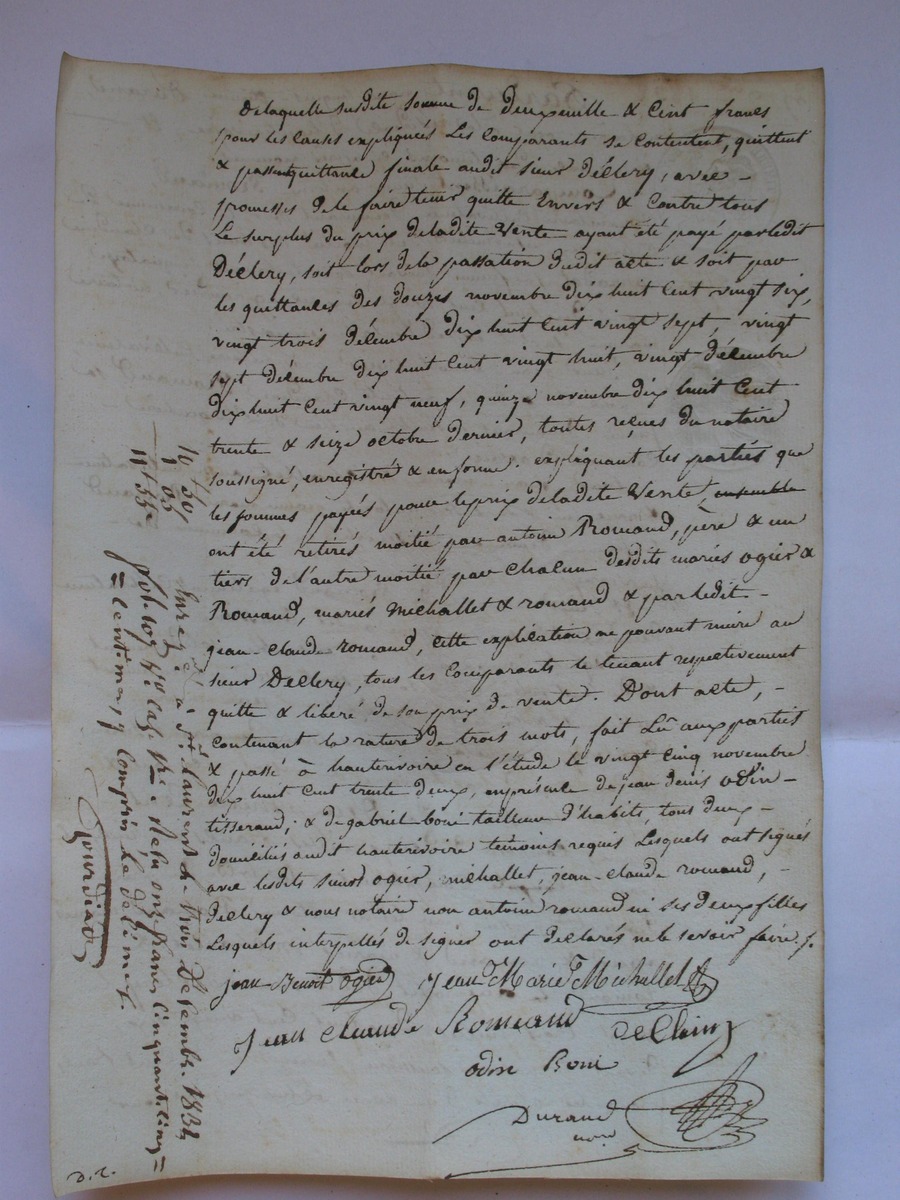 De laquelle susdite somme de Deux mille & Cent francs
pour les causes expliquées Les Comparants se Contentent, quittent
& passent quittance finale audit sieur Déclery, avec -
promesses de le faire tenir quitte Envers & Contre tous
Le surplus du prix de ladite vente ayant été payé par ledit
Déclery, soit lors de la passation dudit acte & soit par
les quittances des douzes novembre dix huit Cent vingt six,
vingt trois décembre dix huit Cent vingt sept, vingt
sept décembre dix huit Cent vingt huit, vingt décembre
dix huit Cent vingt neuf, quinze novembre dix huit Cent
trente & seize octobre dernier, toutes reçues du notaire
soussigné, enregistré & en forme. expliquant les parties que
les sommes payées pour le prix de ladite Vente, ensemble
ont été retirés moitié par antoine Romand, père & un
tiers de l'autre moitié par Chacun desdits mariés ogier &
Romand, mariés Michallet & romand & par ledit -
jean-claude romand, Cette explication ne pouvant nuire au
sieur Declery, tous les Comparants le tenant respectivement
quitte & libéré de son prix de vente. Dont acte, -
Contenant la rature de trois mots, fait Lû aux parties
& passé à hauterivoire en l'étude le vingt Cinq novembre
dix huit Cent trente deux, en présence de jean denis odin -
tisserand, & de gabriel boni tailleur d'habits, tous deux -
domiciliés audit hauterivoire témoins requis Lesquels ont signés
avec lesdits sieurs ogier, michallet, jean-claude romand, -
declery & nous notaire non antoine romand ni ses deux filles
Lesquels interpellés de signer ont déclarés ne le savoir faire /.
jean Benoit ogier Jean Marie Michallet
Jean Claude Romand
odin Boni
Durand
nore
10 f 50
1 05
11 f 55 c
Enregé à St. Laurent le trois Décembre 1832
fol. 109 Vo Cas. 1re. Reçu onze francs Cinquante Cinq =
= Centimes, y Compris le décime.
Gourdiat
D. R.